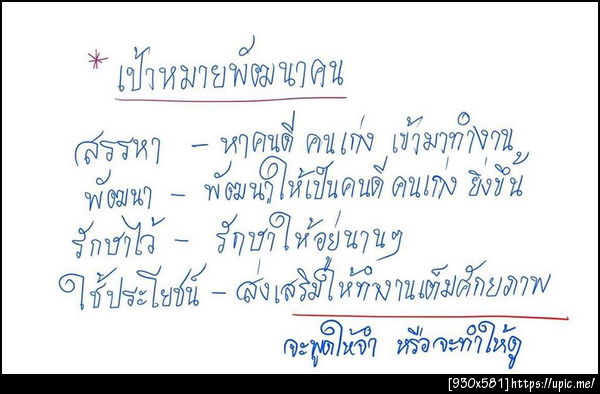 * เป้าหมายพัฒนาคน
สรรหา – หาคนดี คนเก่ง เข้ามาทำงาน
พัฒนา – พัฒนาให้เป็นคนดี คนเก่ง ยิ่งขึ้น
รักษาไว้ – รักษาให้อยู่นานๆ
ใช้ประโยชน์ – ส่งเสริมให้ทำงานเต็มศักยภาพ
จะพูดให้จำ หรือจะทำให้ดู
[930x581]https://upic.me/